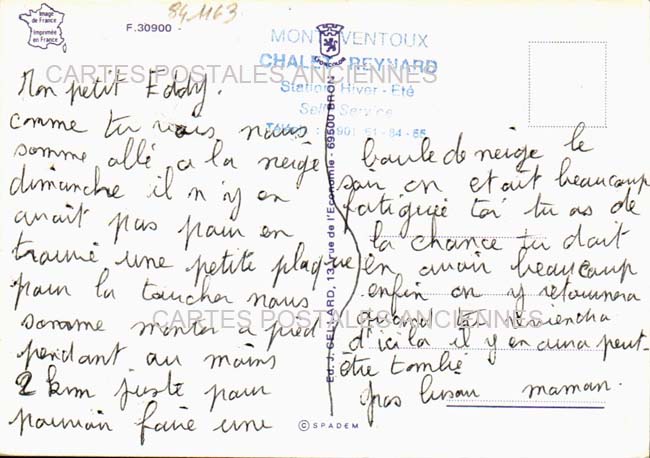 Image
de France
Imprimée
en France
F.30900 -
84 1163
MONT VENTOUX
CHALET REYNARD
Station Hiver - Eté
Self Service
CARTES POSTALES ANCIENNES
Mon petit Eddy.
comme tu vois nous
somme allé a la neige
dimanche il n'y en
avait pas pour en
trouvé une petite plaque
pour la toucher nous
somme monter a pied
pendant au moins
2 km juste pour
pouvoir faire une
boule de neige le
soir on etait beaucoup
fatiguée toi tu as de
la chance tu doit
en avoir beaucoup
enfin on y retournera
quand tu reviendra
d'ici la il y en aura peut-
être tombé
gros bisou maman.
CARTES POSTALES ANCIENNES
Ed. J. CELLARD, 13, rue de l'Economie - 69500 BRON
© SPADEM